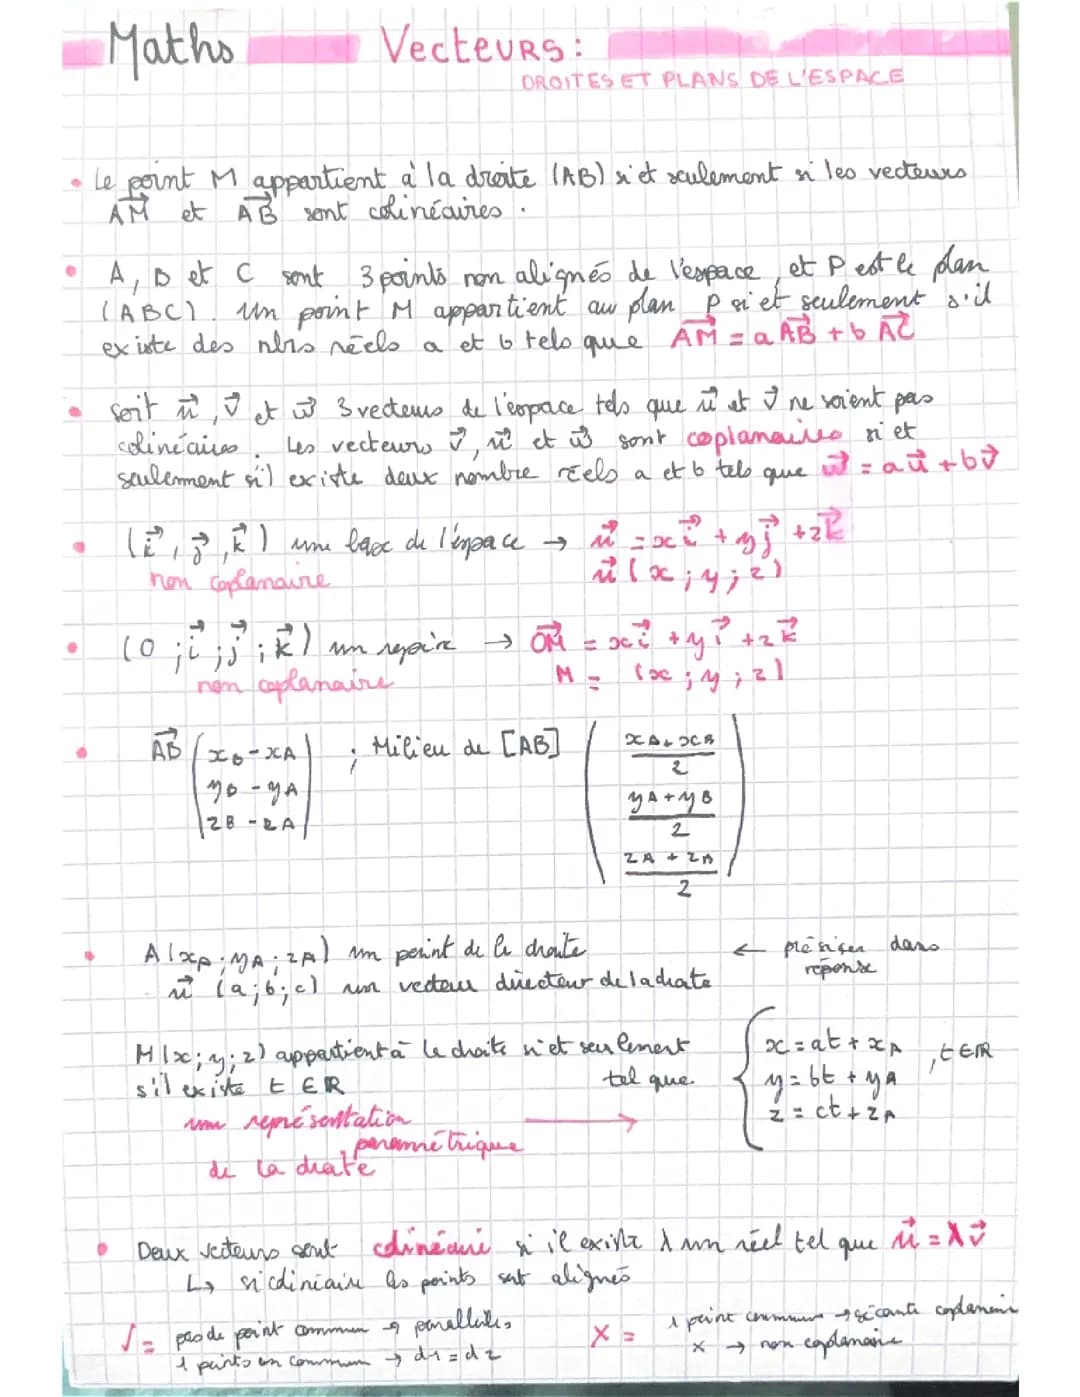 Maths Vecteurs :
DROITES ET PLANS DE L'ESPACE
• Le point M appartient à la droite (AB) si et seulement si les vecteurs
AM⃗ et AB⃗ sont colinéaires.
• A, B et C sont 3 points non alignés de l'espace, et P est le plan
(ABC). Un point M appartient au plan P si et seulement s'il
existe des nbrs réels a et b tels que AM⃗ = a AB⃗ + b AC⃗
• Soit u⃗, v⃗ et w⃗ 3 vecteurs de l'espace tels que u⃗ et v⃗ ne soient pas
colinéaires. Les vecteurs v⃗, u⃗ et w⃗ sont coplanaires si et
seulement s'il existe deux nombre réels a et b tels que w⃗ = a u⃗ + b v⃗
• (i⃗, j⃗, k⃗) une base de l'espace → u⃗ = x i⃗ + y j⃗ + z k⃗
non coplanaire u⃗ (x ; y ; z)
• (O ; i⃗ ; j⃗ ; k⃗) un repère → OM⃗ = x i⃗ + y i⃗ + z k⃗
non coplanaire M = (x ; y ; z)
• AB⃗ ( xB - xA ; Milieu de [AB] ( xA + xB / 2
yB - yA yA + yB / 2
zB - zA ) zA + zB / 2 )
• A (xA ; yA ; zA) un point de la droite ← préciser dans
réponse
u⃗ (a ; b ; c) un vecteur directeur de la droite
M (x ; y ; z) appartient à la droite si et seulement { x = at + xA , t ∈ ℝ
s'il existe t ∈ ℝ tel que y = bt + yA
z = ct + zA
une représentation →
paramétrique
de la droite
• Deux vecteurs sont colinéaire si il existe λ un réel tel que u⃗ = λ v⃗
↳ si colinéaire les points sont alignés
√ = pas de point commun → parallèles X = 1 point commun → sécante coplanaire
1 points en commun → d1 = d2 x → non coplanaire